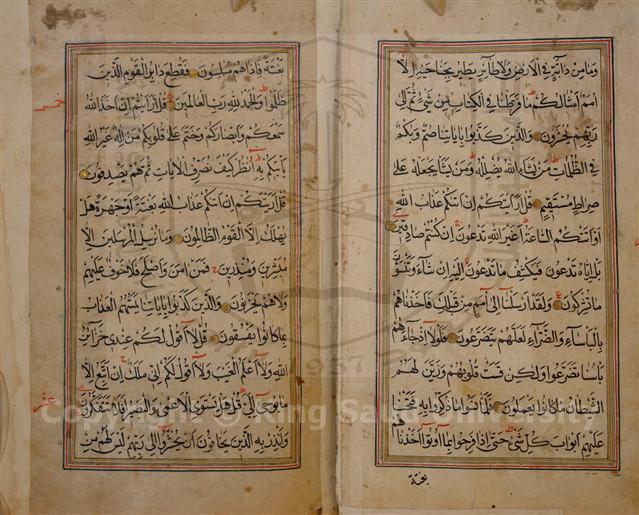 وما من دآبة في الارض ولا طآير يطير بجناحيه الا
امم امثالكم ما فرطنا في الكتاب من شيء ثم الى
ربهم يحشرون والذين كذبوا باياتنا صم وبكم
في الظلمات من يشاء الله يضلله ومن يشأ يجعله على
صراط مستقيم قل ارايتكم ان اتيكم عذاب الله
او اتتكم الساعة اغير الله تدعون ان كنتم صادقين
بل اياه تدعون فيكشف ما تدعون اليه ان شاء وتنسون
ما تشركون ولقد ارسلنا الى امم من قبلك فاخذناهم
بالبأساء والضراء لعلهم يتضرعون فلولا اذ جاءهم
بأسنا تضرعوا ولكن قست قلوبهم وزين لهم
الشيطان ما كانوا يعملون فلما نسوا ما ذكروا به فتحنا
عليهم ابواب كل شيء حتى اذا فرحوا بما اوتوا اخذناهم
بغتة
بغتة فاذا هم مبلسون فقطع دابر القوم الذين
ظلموا والحمد لله رب العالمين قل ارايتم ان اخذ الله
سمعكم وابصاركم وختم على قلوبكم من اله غير الله
يأتيكم به انظر كيف نصرف الايات ثم هم يصدفون
قل ارايتكم ان اتيكم عذاب الله بغتة او جهرة هل
يهلك الا القوم الظالمون وما نرسل المرسلين الا
مبشرين ومنذرين فمن امن واصلح فلا خوف عليهم
ولا هم يحزنون والذين كذبوا باياتنا يمسهم العذاب
بما كانوا يفسقون قل لا اقول لكم عندي خزآئن
الله ولا اعلم الغيب ولا اقول لكم اني ملك ان اتبع الا
ما يوحى الي قل هل يستوي الاعمى والبصير افلا تتفكرون
وانذر به الذين يخافون ان يحشروا الى ربهم ليس لهم من
1957
Copyright © King Saud University